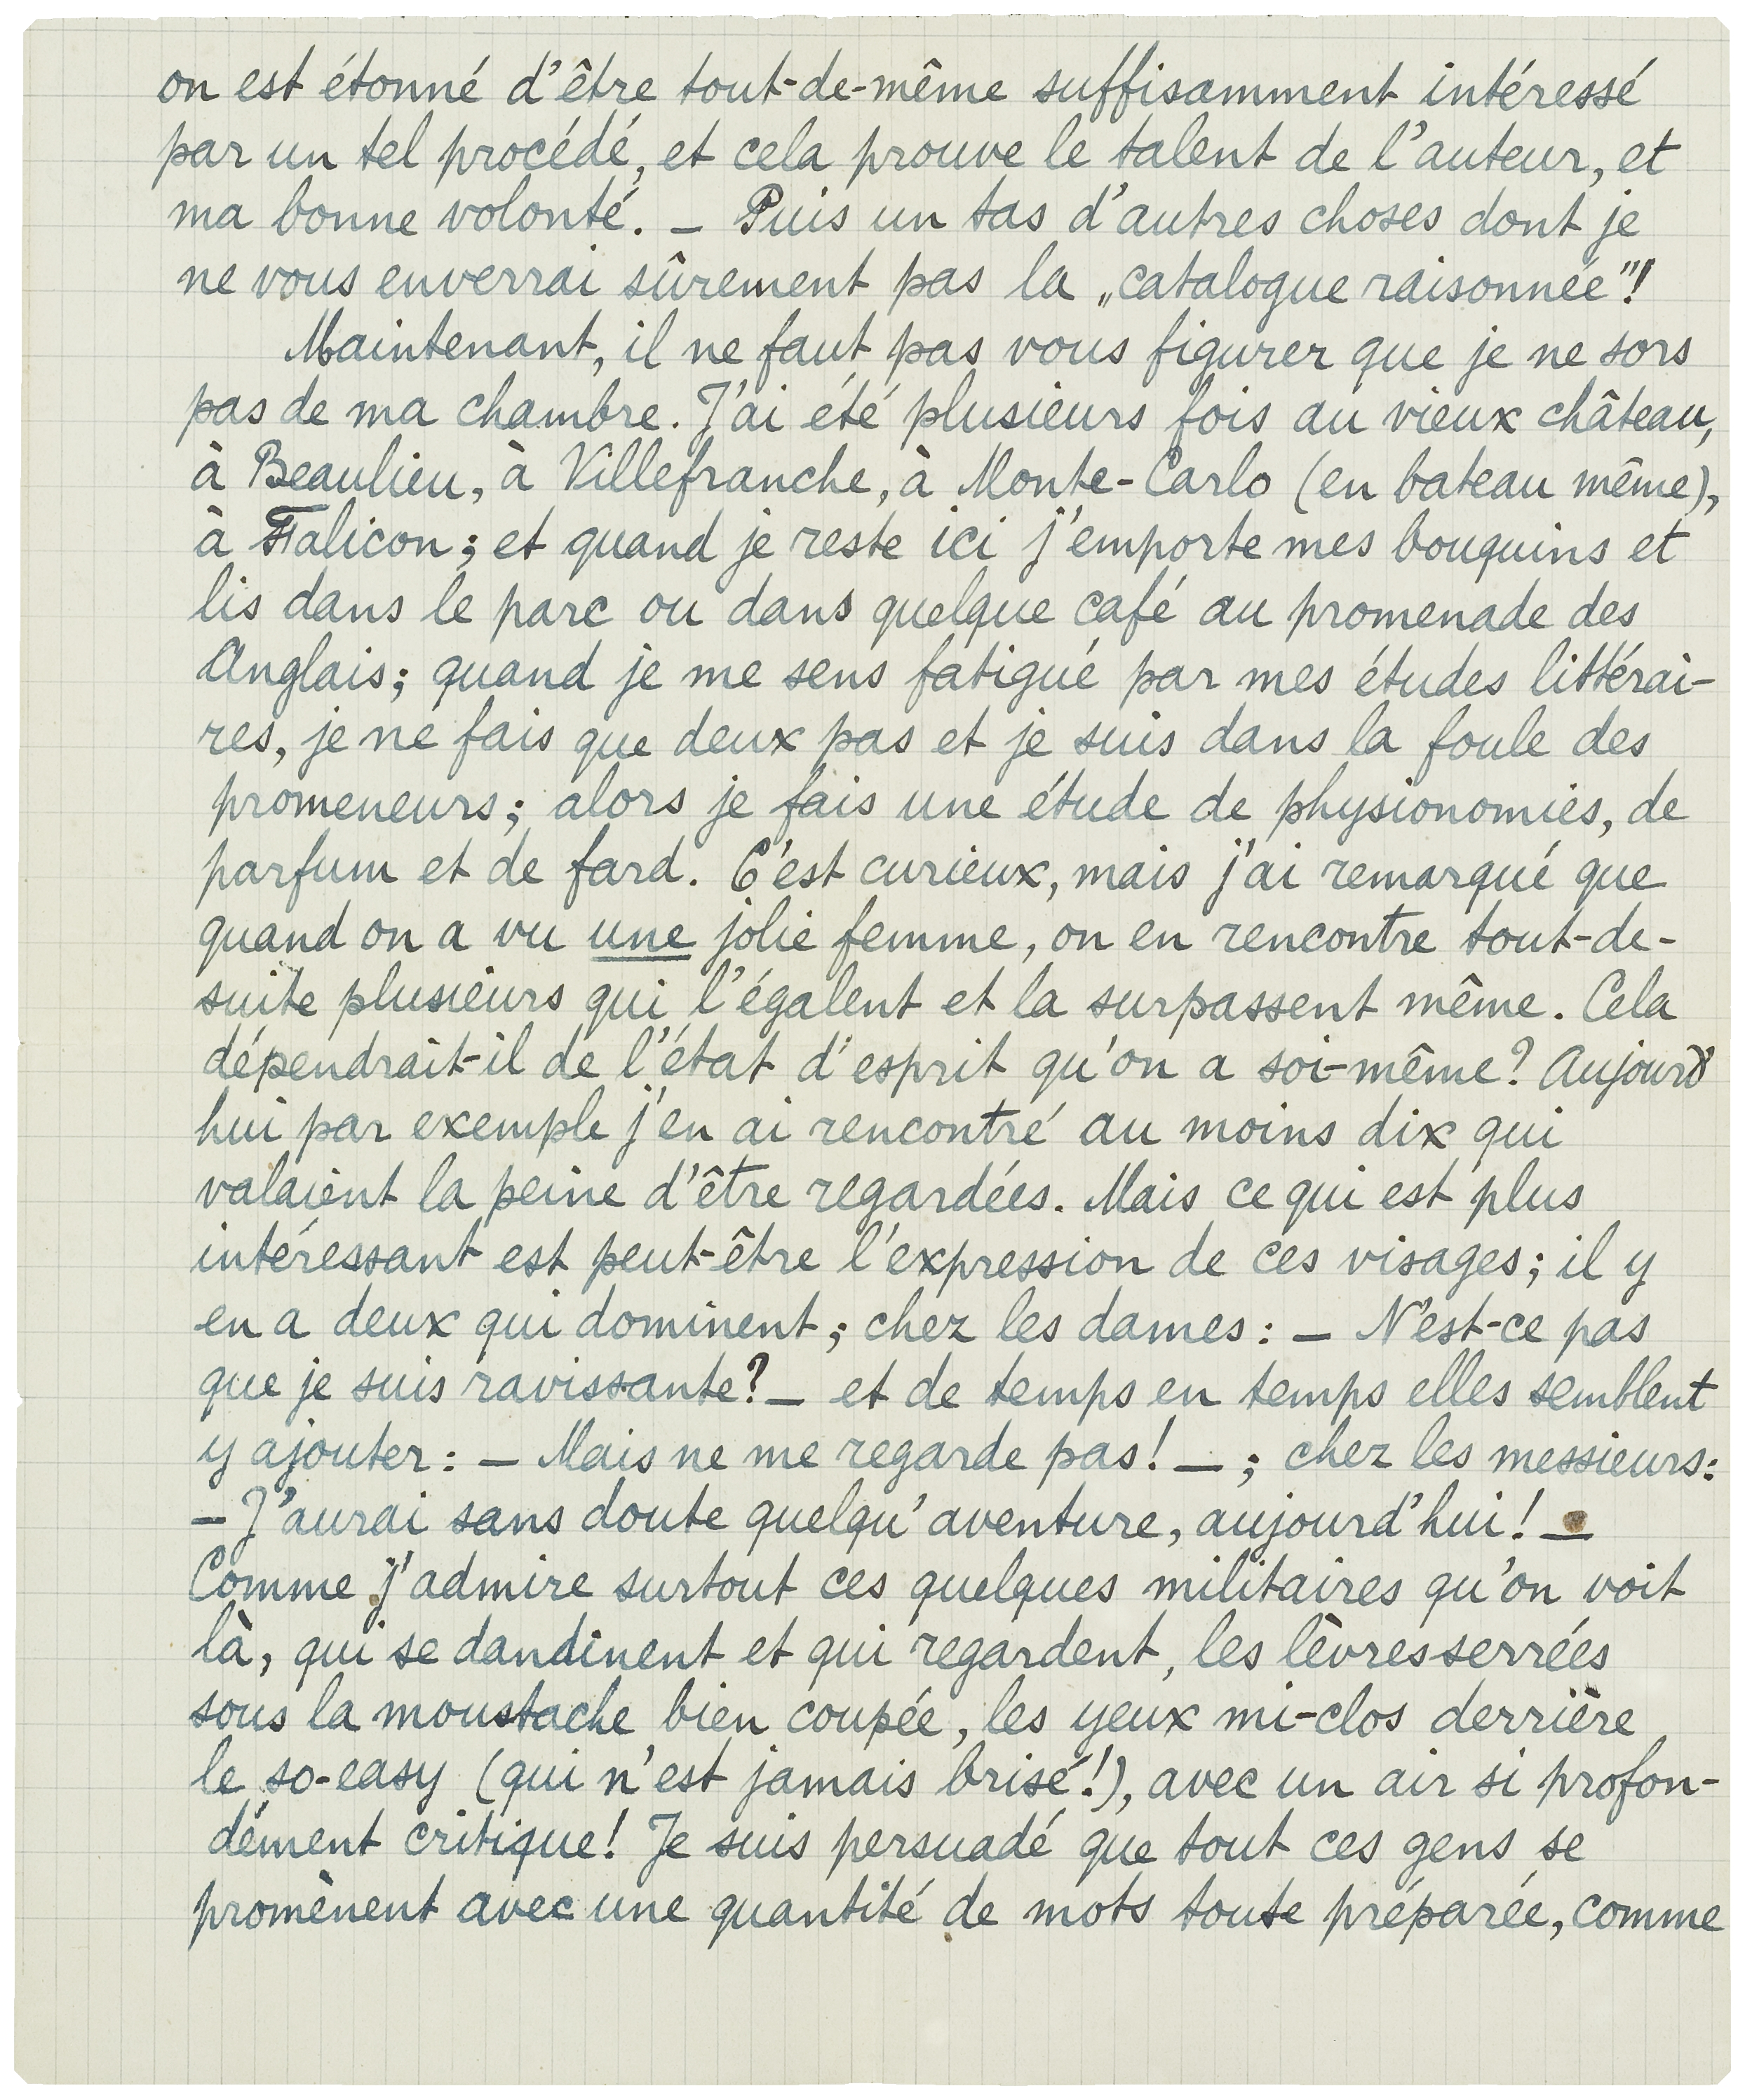 on est étonné d'être tout-de-même suffisamment intéressé
par un tel procédé, et cela prouve le talent de l'auteur, et
ma bonne volonté. — Puis un tas d'autres choses dont je
ne vous enverrai sûrement pas la „catalogue raisonnée"!
Maintenant, il ne faut pas vous figurer que je ne sors
pas de ma chambre. J'ai été plusieurs fois au vieux château,
à Beaulieu, à Villefranche, à Monte-Carlo (en bateau même),
à Falicon; et quand je reste ici j'emporte mes bouquins et
lis dans le parc ou dans quelque café au promenade des
Anglais; quand je me sens fatigué par mes études littérai-
res, je ne fais que deux pas et je suis dans la foule des
promeneurs; alors je fais une étude de physionomies, de
parfum et de fard. C'est curieux, mais j'ai remarqué que
quand on a vu une jolie femme, on en rencontre tout-de-
suite plusieurs qui l'égalent et la surpassent même. Cela
dépendrait-il de l'état d'esprit qu'on a soi-même? Aujourd'
hui par exemple j'en ai rencontré au moins dix qui
valaient la peine d'être regardées. Mais ce qui est plus
intéressant est peut-être l'expression de ces visages; il y
en a deux qui dominent; chez les dames: — N'est-ce pas
que je suis ravissante? — et de temps en temps elles semblent
y ajouter: — Mais ne me regarde pas! — ; chez les messieurs:
— J'aurai sans doute quelqu'aventure, aujourd'hui! —
Comme j'admire surtout ces quelques militaires qu'on voit
là, qui se dandinent et qui regardent, les lèvres serrées
sous la moustache bien coupée, les yeux mi-clos derrière
le so-easy (qui n'est jamais brisé!), avec un air si profon-
dément critique! Je suis persuadé que tout ces gens se
promènent avec une quantité de mots toute préparée, comme